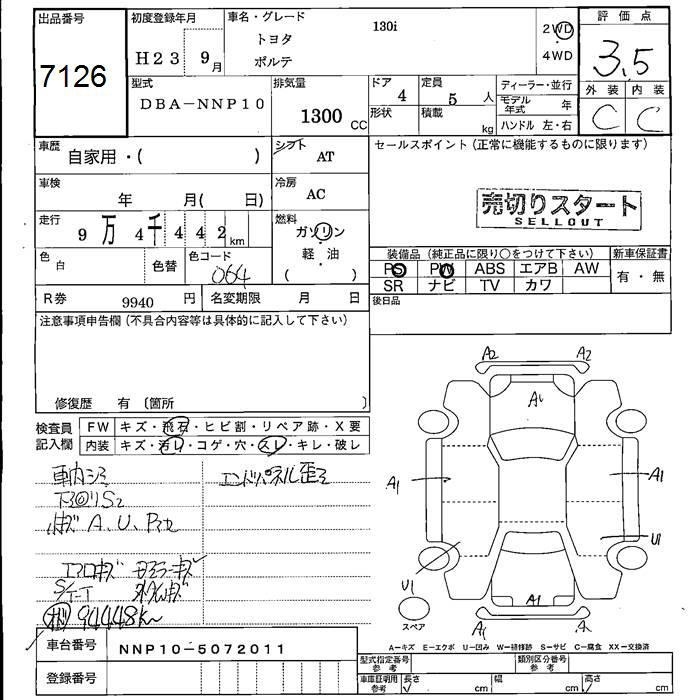 出品番号
7126
初度登録年月
H23 9月
車名・グレード
トヨタ
ポルテ
130i
2WD
4WD
評価点
3.5
外装 内装
C C
型式
DBA-NNP10
排気量
1300 CC
ドア 4
形状
定員 5 人
積載 kg
ディーラー・並行
モデル年式 年
ハンドル 左・右
車歴 自家用・( )
シフト AT
車検 年 月( 日)
冷房 AC
走行 9万4千442km
燃料 ガソリン
軽・油
( )
色 白
色替
色コード 064
R券 9940 円
名変期限 月 日
セールスポイント(正常に機能するものに限ります)
売切りスタート
SELLOUT
装備品(純正品に限り○をつけて下さい)
PS PW ABS エアB AW
SR ナビ TV カワ
新車保証書
有・無
後日品
注意事項申告欄(不具合内容等は具体的に記入して下さい)
修復歴 有〔箇所 〕
検査員記入欄
FW キズ・飛石・ヒビ割・リペア跡・X要
内装 キズ・汚れ・コゲ・穴・スレ・キレ・破レ
車内シミ
エンドパネル歪ミ
下回りS2
小キズ A、U、P
エアロキズ
94448Km
車台番号 NNP10-5072011
登録番号
A2 A2
A1
A1 A1
U1
U1
A1
A1
スペア
A-キズ E-エクボ U-凹み W-補修跡 S-サビ C-腐食 XX-交換済
型式指定番号 参考
類別区分番号 参考
車庫証明用 参考
長さ cm
幅 cm
高さ cm